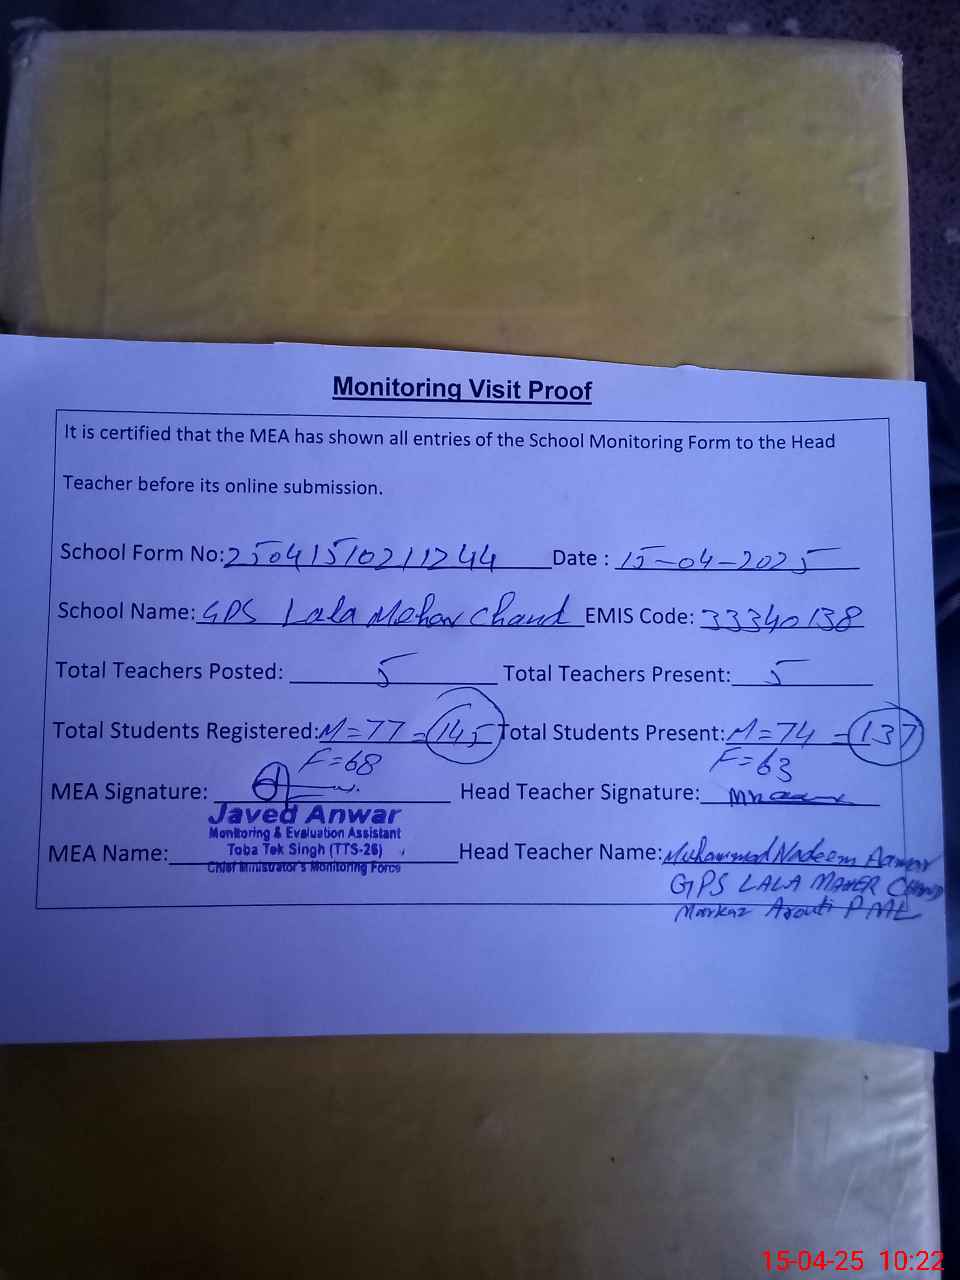 Monitoring Visit Proof
It is certified that the MEA has shown all entries of the School Monitoring Form to the Head
Teacher before its online submission.
School Form No: 250415102111244 Date : 15-04-2025
School Name: GPS Lala Mehar Chand EMIS Code: 33340138
Total Teachers Posted: 5 Total Teachers Present: 5
Total Students Registered: M=77 = 145 Total Students Present: M=74 = 137
F=68 F=63
MEA Signature: Head Teacher Signature:
Javed Anwar
Monitoring & Evaluation Assistant
Toba Tek Singh (TTS-26)
Chief Ministrator's Monitoring Force
MEA Name: Head Teacher Name: Muhammad Nadeem
GPS LALA MAHER CHAND
Markaz Arouti PML
15-04-25 10:22